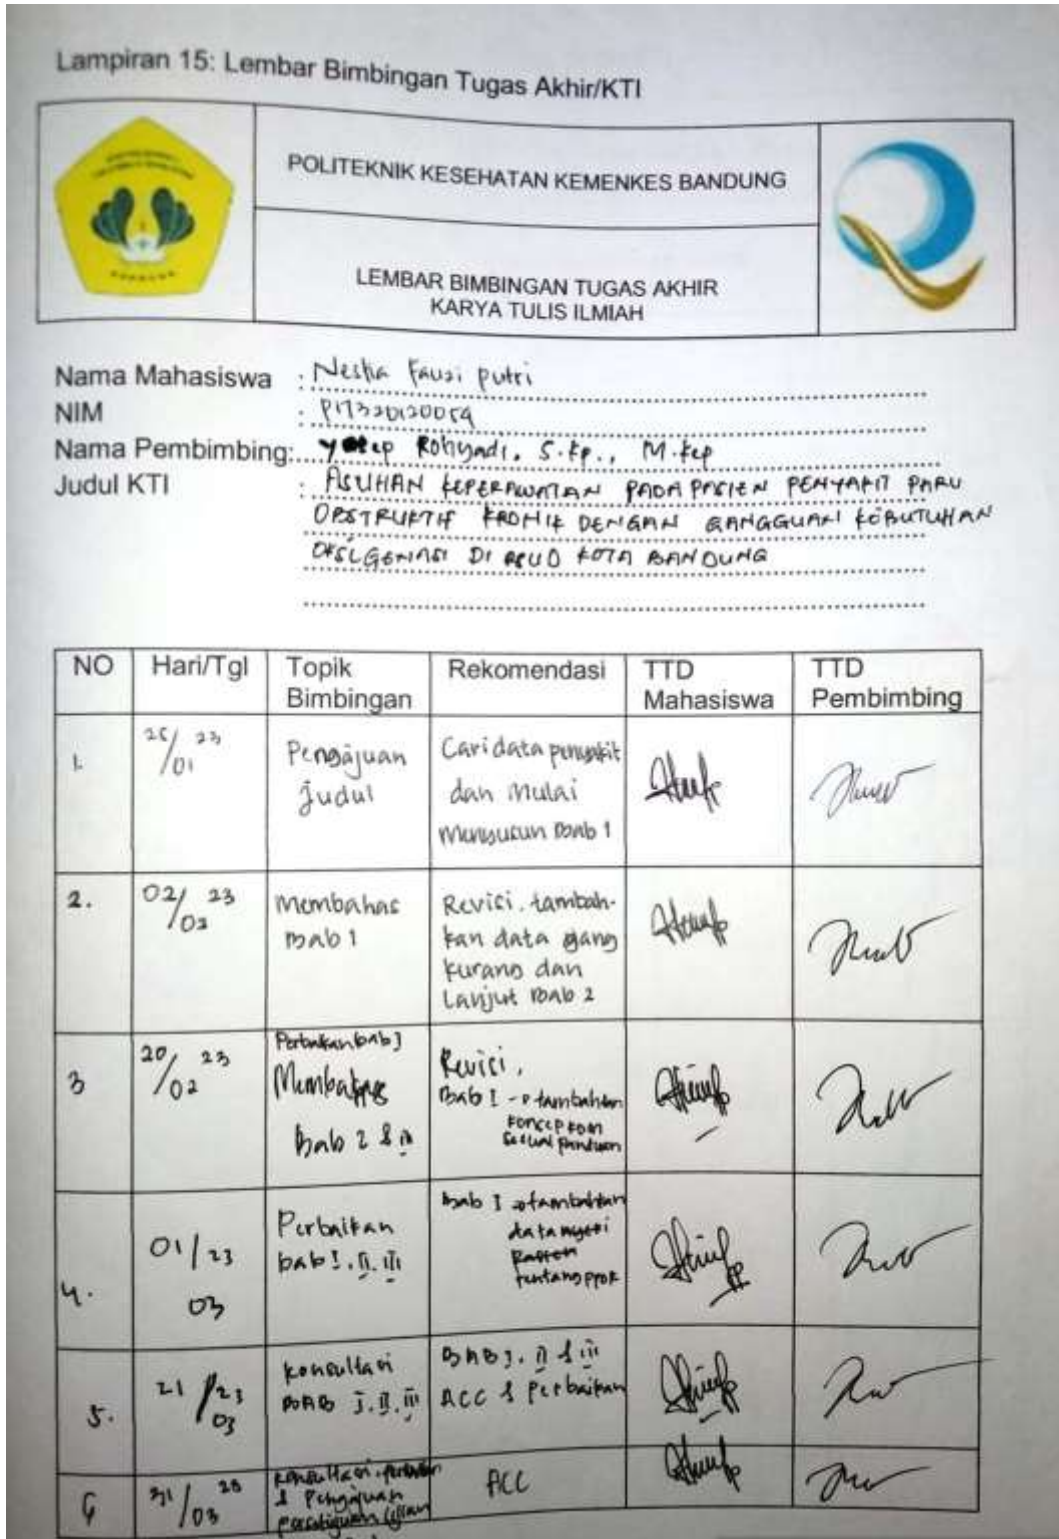 Lampiran 15: Lembar Bimbingan Tugas Akhir/KTI
POLITEKNIK KESEHATAN KEMENKES BANDUNG
LEMBAR BIMBINGAN TUGAS AKHIR
KARYA TULIS ILMIAH
Nama Mahasiswa : Nestia Fauzi Putri
NIM : P17320120054
Nama Pembimbing: Yosep Rohyadi, S.Kp., M.Kep
Judul KTI : ASUHAN KEPERAWATAN PADA PASIEN PENYAKIT PARU
OBSTRUKTIF KRONIK DENGAN GANGGUAN KEBUTUHAN
OKSIGENASI DI RSUD KOTA BANDUNG
NO Hari/Tgl Topik Bimbingan Rekomendasi TTD Mahasiswa TTD Pembimbing
1. 25/01 23
Pengajuan
judul
Cari data penyakit
dan mulai
menyusun Bab 1
2. 02/02 23
Membahas
Bab 1
Revisi, tambah-
kan data yang
kurang dan
Lanjut Bab 2
3 20/02 23
Perbaikan bab I
Membahas
Bab 2 & III
Revisi,
Bab I → tambahkan
konsep
sesuai panduan
4. 01/03 23
Perbaikan
bab I, II, III
Bab I → tambahkan
data
tentang PPOK
5. 21/03 23
Konsultasi
BAB I, II, III
BAB I, II & III
ACC & Perbaikan
6 31/03 23
Konsultasi,
& Pengajuan
ACC